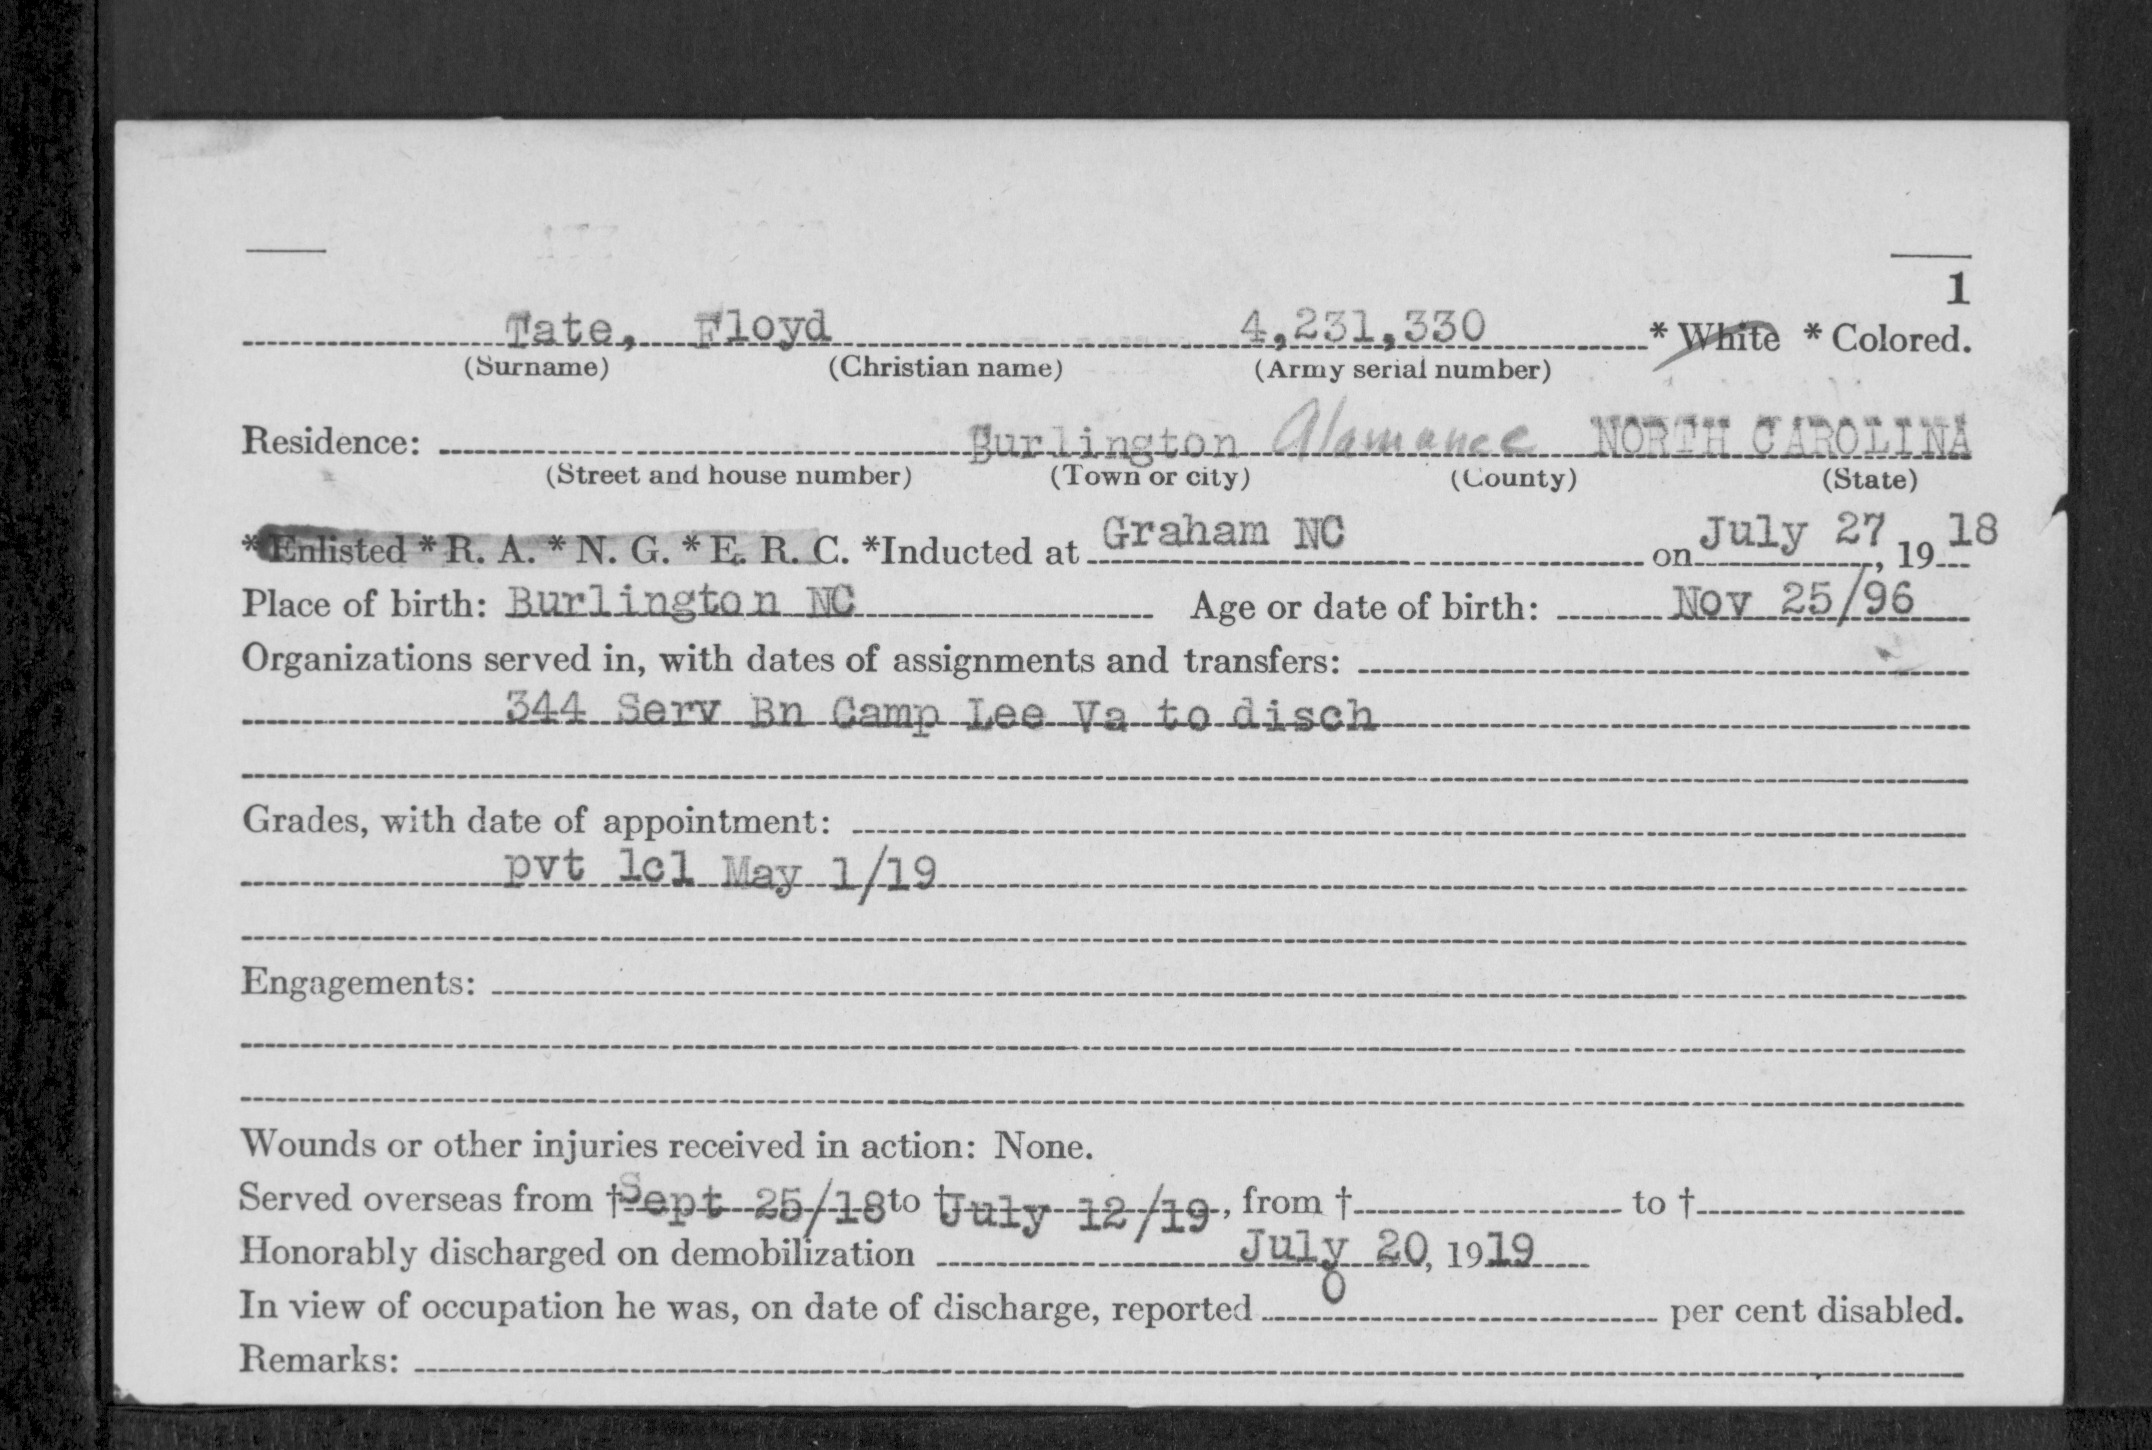 1
Tate, Floyd 4,231,330 * White * Colored.
(Surname) (Christian name) (Army serial number)
Residence: Burlington Alamance NORTH CAROLINA
(Street and house number) (Town or city) (County) (State)
*Enlisted * R. A. * N. G. * E. R. C. *Inducted at Graham NC on July 27, 19 18
Place of birth: Burlington NC Age or date of birth: Nov 25/96
Organizations served in, with dates of assignments and transfers:
344 Serv Bn Camp Lee Va to disch
Grades, with date of appointment:
pvt 1cl May 1/19
Engagements:
Wounds or other injuries received in action: None.
Served overseas from † Sept 25/18 to † July 12/19, from † to †
Honorably discharged on demobilization July 20, 1919
In view of occupation he was, on date of discharge, reported 0 per cent disabled.
Remarks: